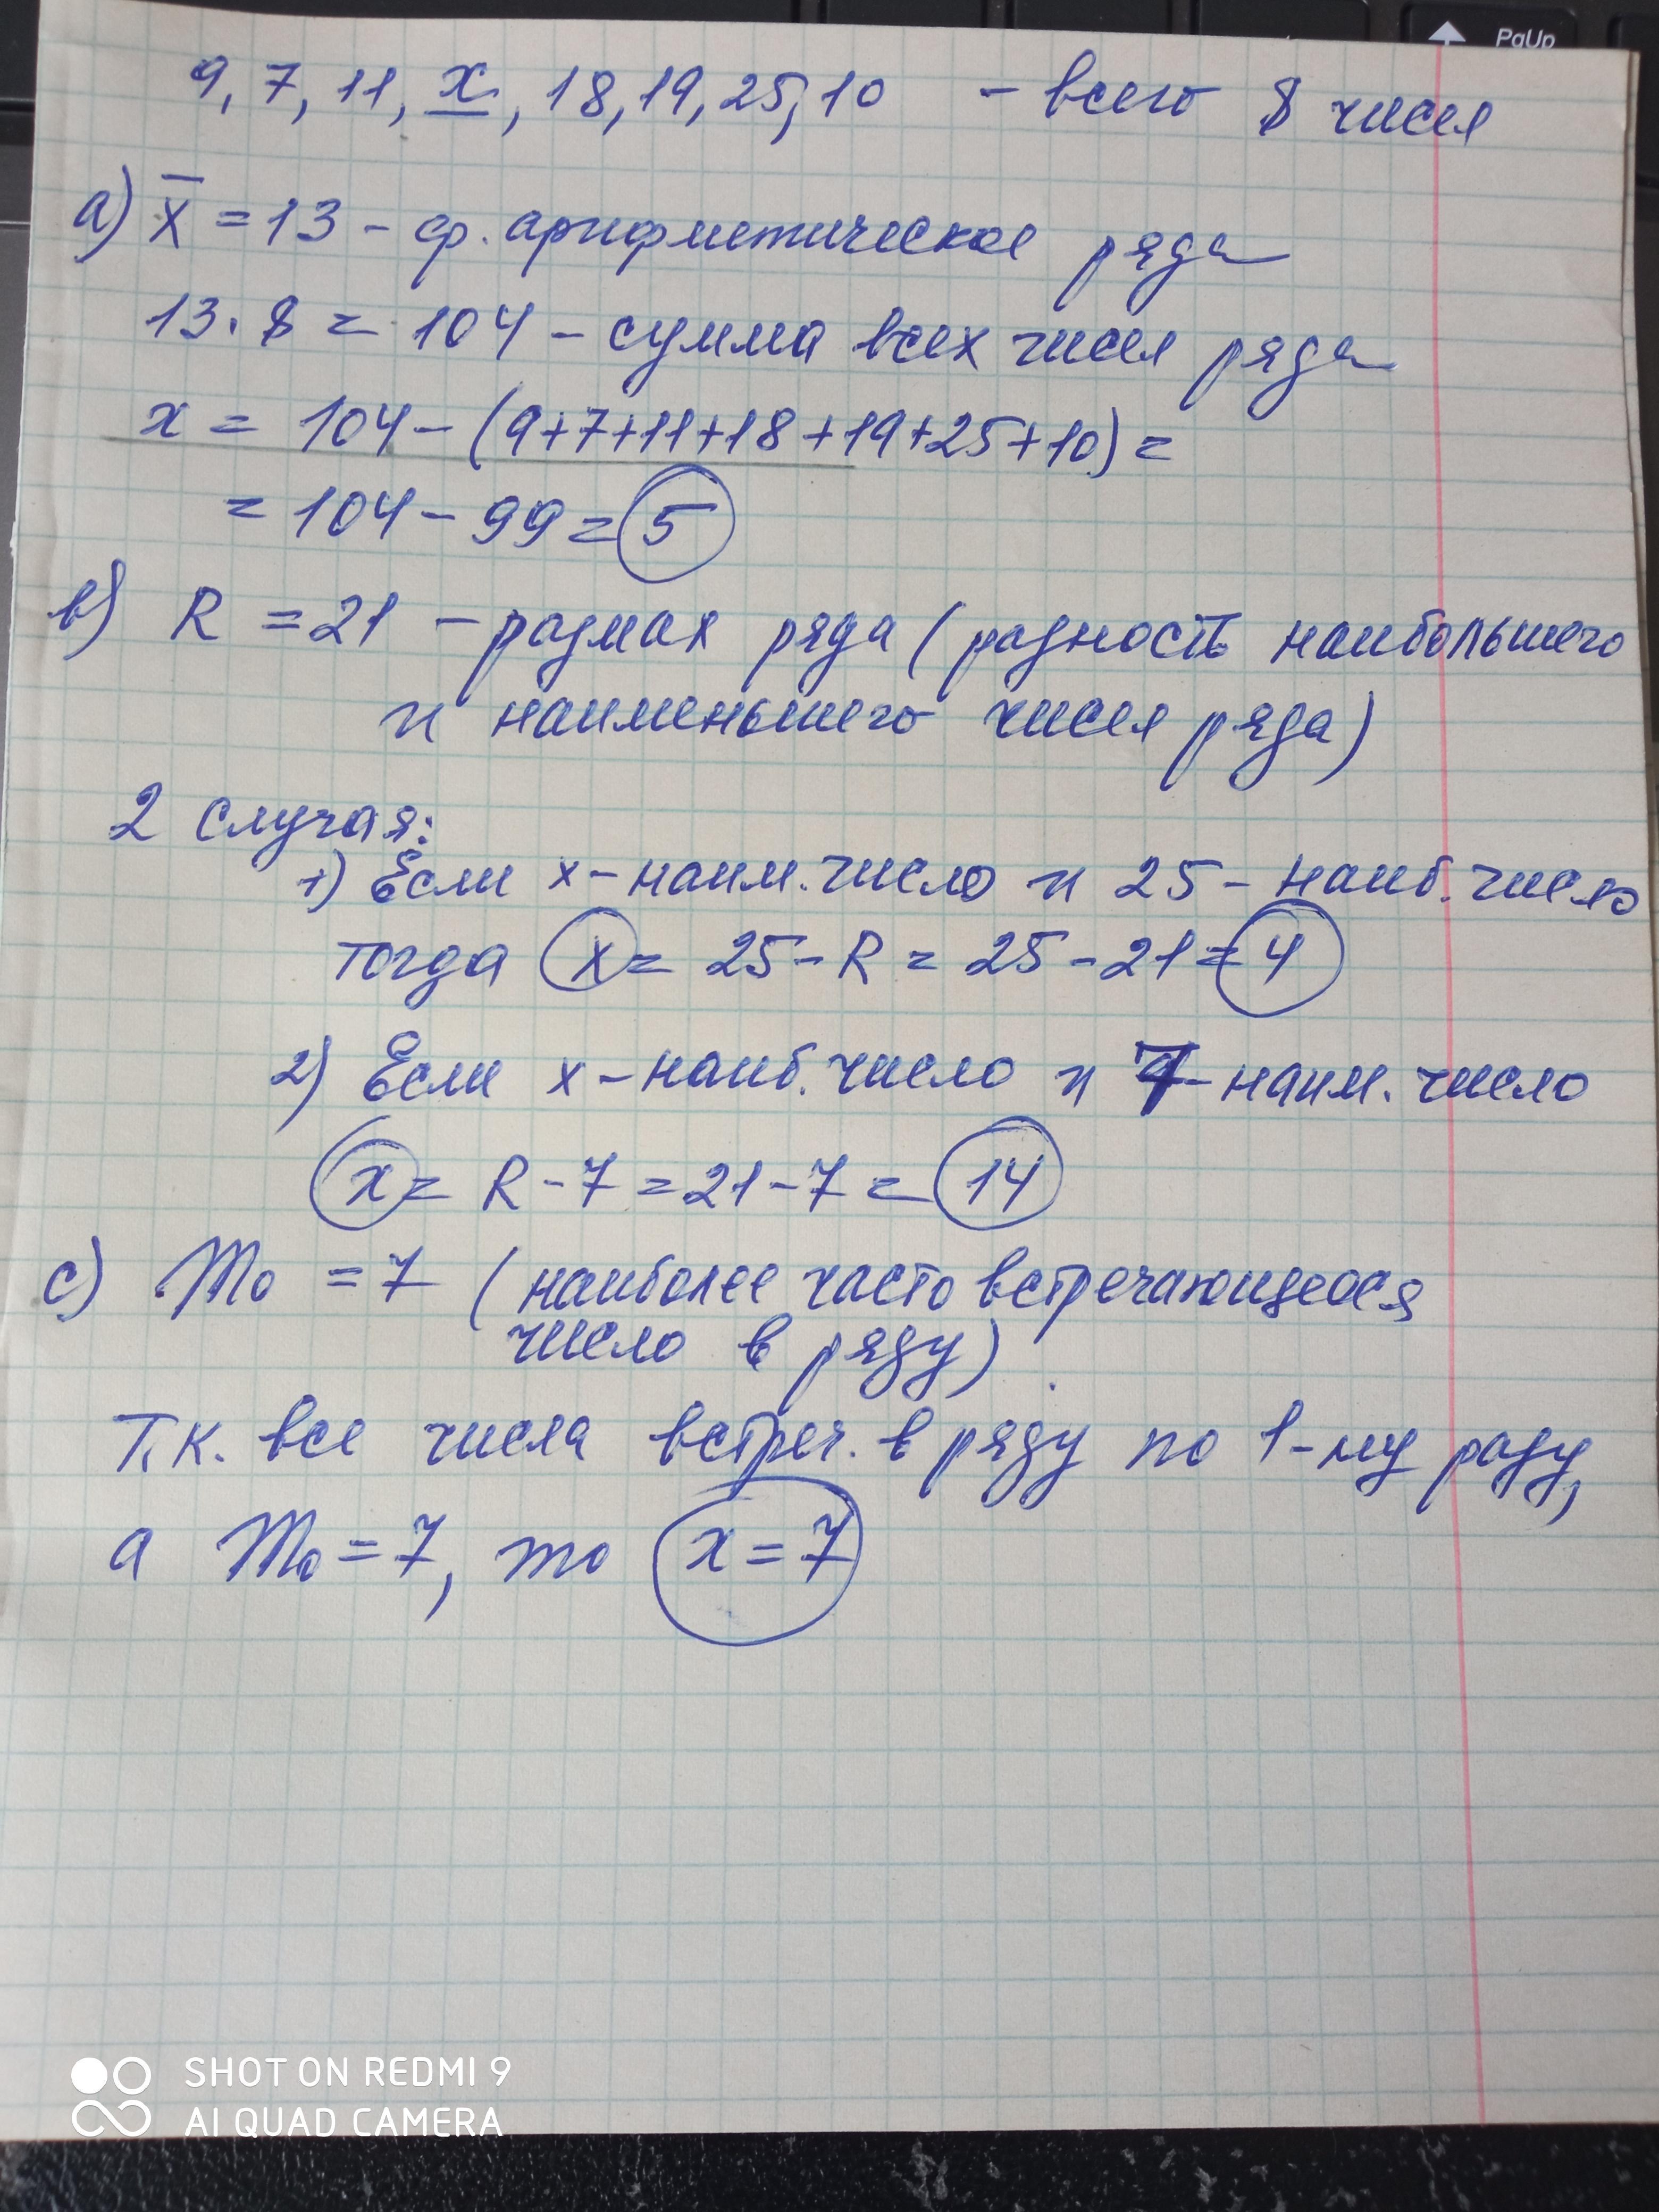 PgUp
9, 7, 11, x, 18, 19, 25, 10 - всего 8 чисел
а) x̅ = 13 - ср. арифметическое ряда
13 · 8 = 104 - сумма всех чисел ряда
x = 104 - (9+7+11+18+19+25+10) =
= 104 - 99 = 5
в) R = 21 - размах ряда (разность наибольшего
и наименьшего чисел ряда)
2 случая:
1) Если x - наим. число и 25 - наиб. число
тогда x = 25 - R = 25 - 21 = 4
2) Если x - наиб. число и 7 - наим. число
x = R - 7 = 21 - 7 = 14
с) Mo = 7 (наиболее часто встречающееся
число в ряду)
Т.к. все числа встреч. в ряду по 1-му разу,
а Mo = 7, то x = 7
SHOT ON REDMI 9
AI QUAD CAMERA